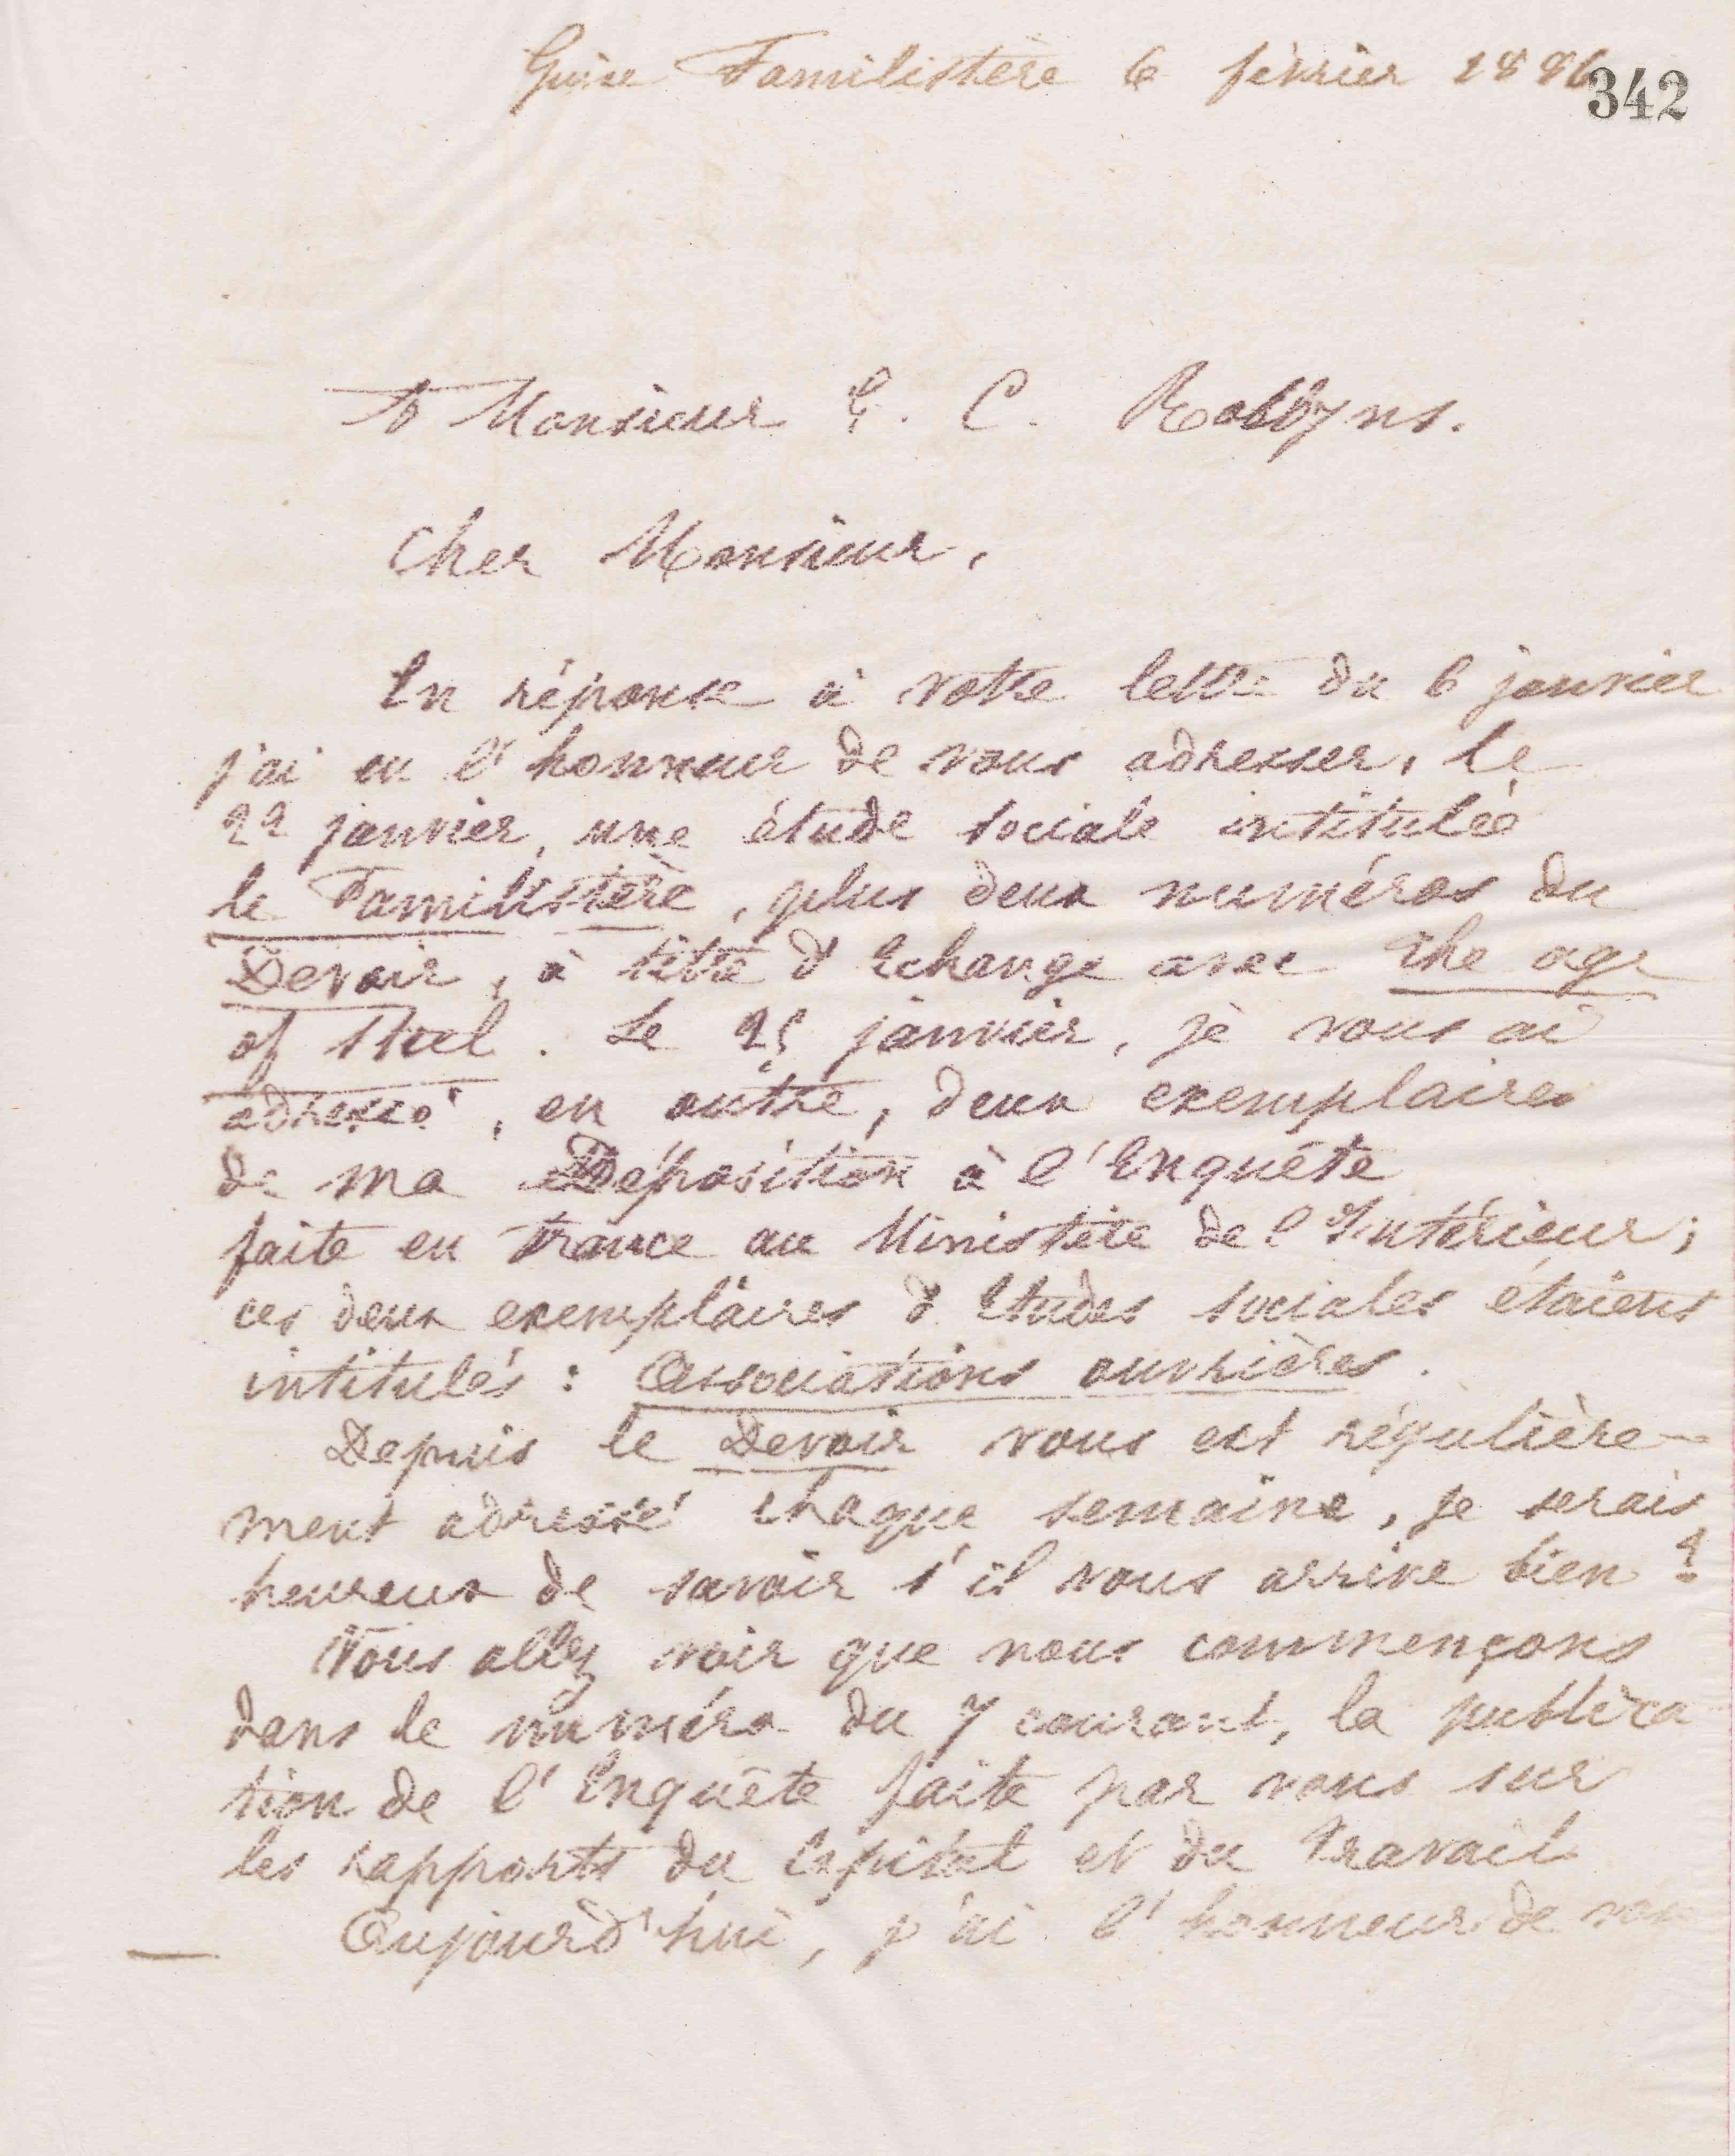 Guise Familistère 6 février 1886
342
A Monsieur E. C. Robbyns.
Cher Monsieur,
En réponse à votre lettre du 6 janvier
j'ai eu l'honneur de vous adresser, le
22 janvier, une étude sociale intitulée
le Familistère, plus deux numéros du
Devoir, à titre d'Echange avec The age
of Steel. Le 25 janvier, je vous ai
adressé, en outre, deux exemplaires
de ma Déposition à l'Enquête
faite en France au Ministère de l'Intérieur;
ces deux exemplaires d'Etudes sociales étaient
intitulés : Associations ouvrières.
Depuis le Devoir vous est régulière-
ment adressé chaque semaine, je serais
heureux de savoir s'il vous arrive bien ?
Vous allez voir que nous commençons
dans le numéro du 7 courant, la publica
tion de l'Enquête faite par vous sur
les rapports du Capital et du Travail
Aujourd'hui, j'ai l'honneur de vous